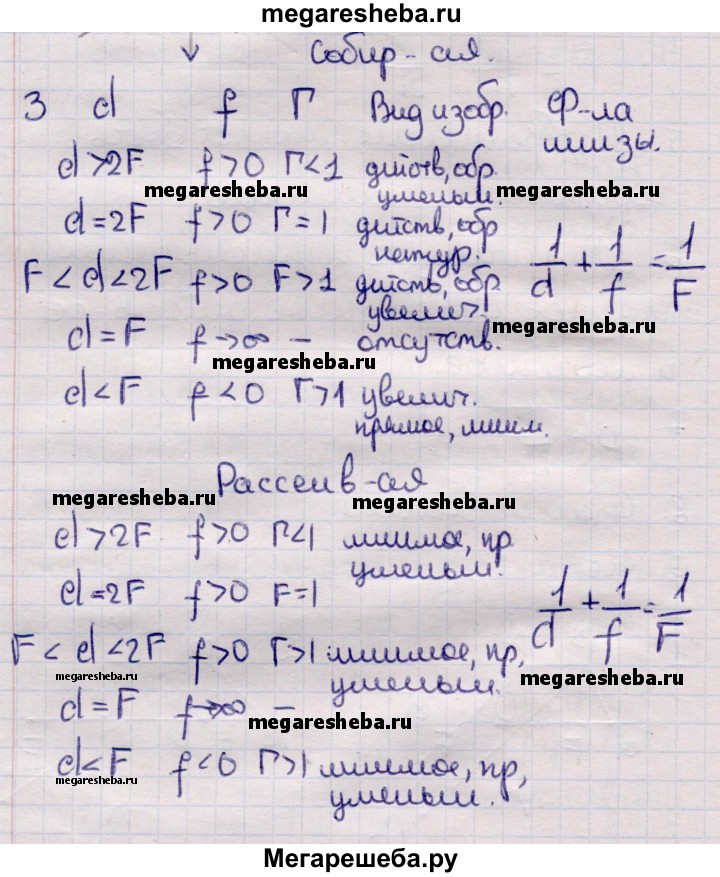 megaresheba.ru
Собир-ая.
3 d f Г Вид изобр. Ф-ла линзы.
d>2F f>0 Г<1 действ, обр. уменьш.
megaresheba.ru megaresheba.ru
d=2F f>0 Г=1 действ, обр натур.
1/d + 1/f = 1/F
F<d<2F f>0 F>1 действ, обр. увелич.
megaresheba.ru
d=F f→∞ – отсутств.
megaresheba.ru
d<F f<0 Г>1 увелич. прямое, мним.
Рассеив-ая
megaresheba.ru megaresheba.ru
d>2F f>0 Г<1 мнимое, пр. уменьш.
d=2F f>0 F=1
1/d + 1/f = 1/F
F<d<2F f>0 Г>1 мнимое, пр, уменьш.
megaresheba.ru megaresheba.ru
d=F f→∞ –
megaresheba.ru
d<F f<0 Г>1 мнимое, пр, уменьш.
megaresheba.ru megaresheba.ru
Мегарешеба.ру